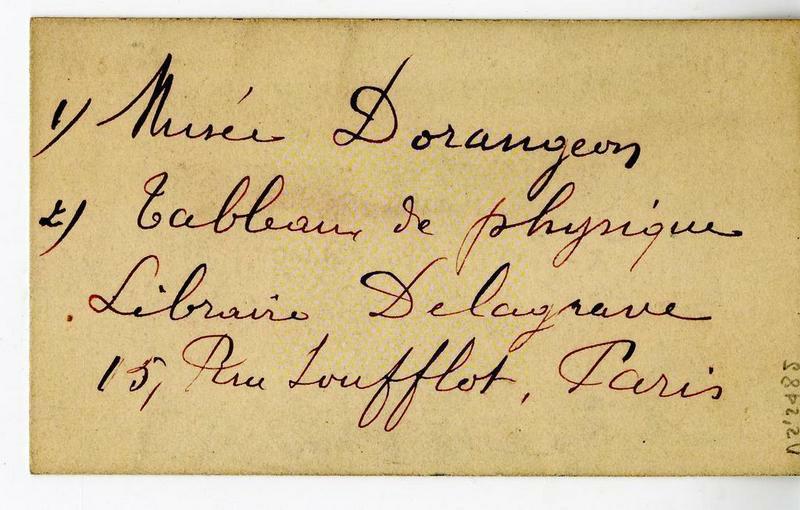 1) Musée Dorangeon
2) Tableau de physique
Libraire Delagrave
15, Rue Soufflot, Paris